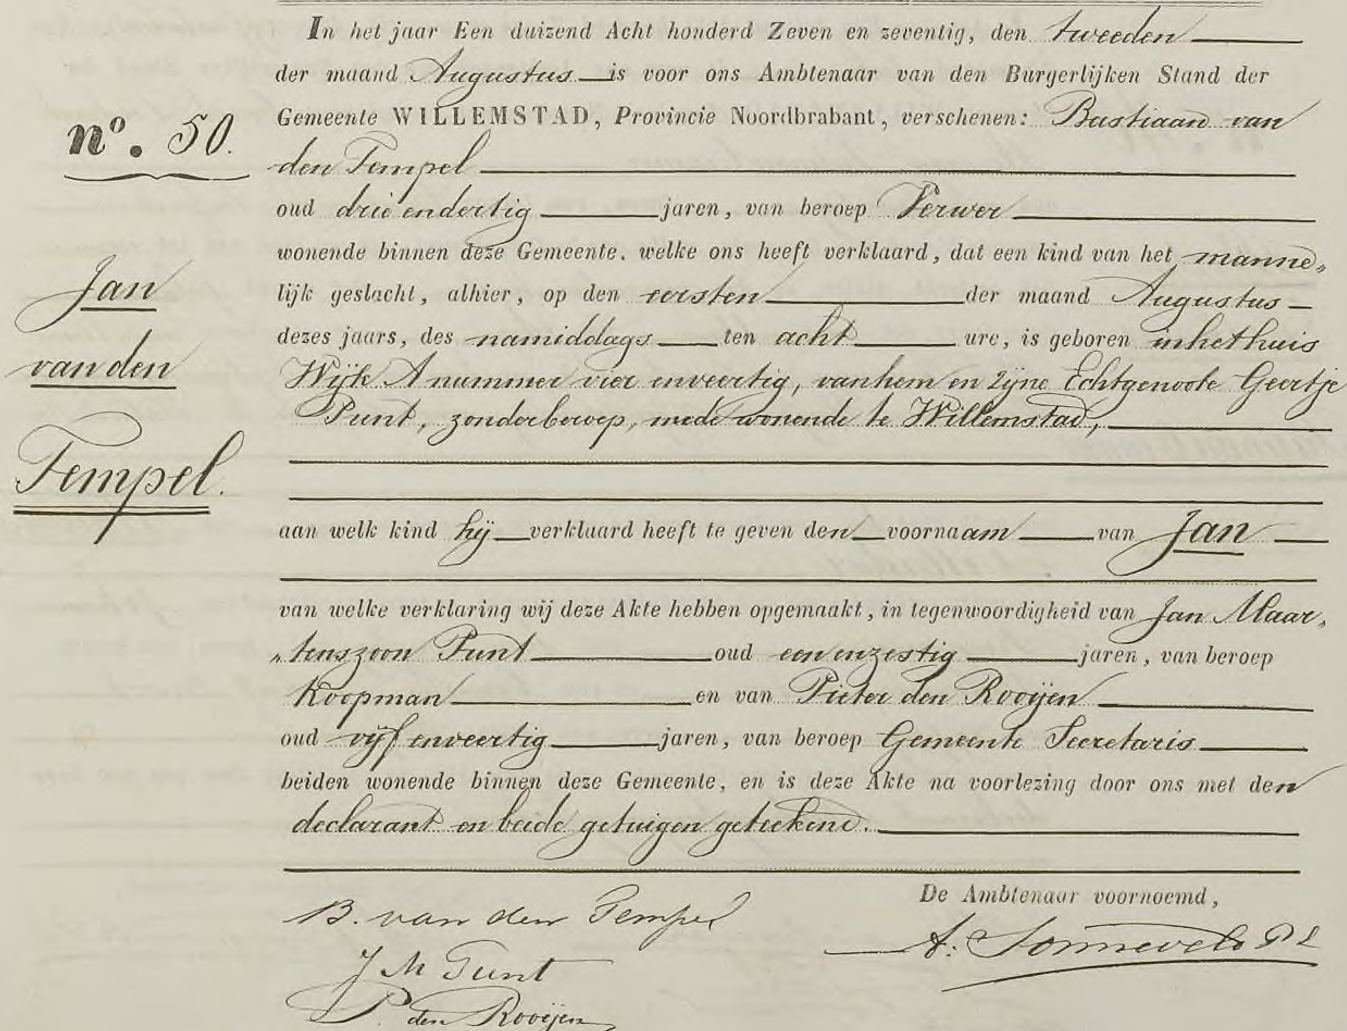 In het jaar Een duizend Acht honderd Zeven en zeventig, den tweeden
der maand Augustus is voor ons Ambtenaar van den Burgerlijken Stand der
Gemeente WILLEMSTAD, Provincie Noordbrabant, verschenen: Bastiaan van
den Tempel
oud drie en dertig jaren, van beroep Verwer
wonende binnen deze Gemeente, welke ons heeft verklaard, dat een kind van het manne„
lijk geslacht, alhier, op den eersten der maand Augustus
dezes jaars, des namiddags ten acht ure, is geboren in het huis
Wijk A nummer vier en veertig, van hem en zijne Echtgenoote Geertje
Punt, zonder beroep, mede wonende te Willemstad,
aan welk kind hij verklaard heeft te geven den voornaam van Jan
van welke verklaring wij deze Akte hebben opgemaakt, in tegenwoordigheid van Jan Maar„
„tenszoon Punt oud een en zestig jaren, van beroep
Koopman en van Pieter den Rooijen
oud vijf en veertig jaren, van beroep Gemeente Secretaris
beiden wonende binnen deze Gemeente, en is deze Akte na voorlezing door ons met den
declarant en beide getuigen geteekend.
nº. 50.
Jan
van den
Tempel.
De Ambtenaar voornoemd,
B. van den Tempel
A. Sonneveld
J M Punt
P. den Rooijen